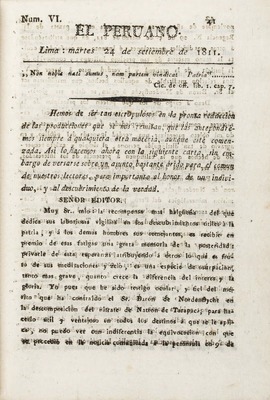 Num. VI.
EL PERUANO.
Lima: martes 24 de setiembre de 1811.
„Non nobis nati sumus, nam partem vindicat Patria"
Cic. de off. lib. 1. cap. 7.
Hemos de ser tan escrupulosos en da pronta redaccion
de las producciones que se nos remitan, que las antepondre-
mos siempre á qualquiera otra materia, aunque esté comen-
zada. Así lo hacemos ahora con la siguiente carta, sin em-
bargo de versarse sobre un punto bastante árido para el comun
de nuestros lectores, pero importante al honor de un indivi-
duo, y al descubrimiento de la verdad.
SEÑOR EDITOR.
Muy Sr. mio: la recompensa mas halgüeña del que
dedica sus laboriosas vigilias en descubrimientos útiles á la
patria, y á los demas hombres sus semejantes, es recibir en
premio de esas fatigas una grata memoria de la posteridad:
privarle de esta esperanza atribuyendo á otros lo que es fru-
to de sus meditaciones y zelo, es una especie de usurpacion,
tanto mas grave, quanto crece la diferencia del interes y la
gloria. Yo pues que he sido testigo ocular, y fiel del mé-
rito que ha contraido el Sr. Baron de Nordenflycht en
la descomposicion del nitrate de Natron de Tarapacá, para ha-
cerlo util y ventajoso en todos los destinos á que se le apli-
ca, no puedo ver con indiferencia la equivocacion con que
se procedió en la noticia comunicada á la peninsula es de